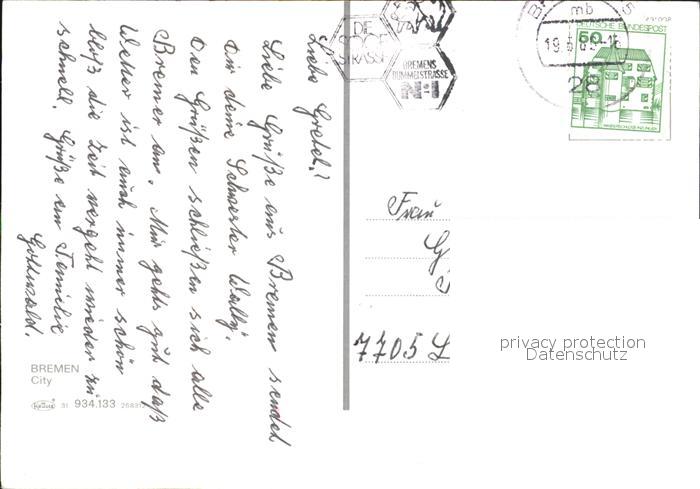 Liebe Gretel!
Liebe Grüße aus Bremen sendet
dir deine Schwester Wally.
Den Grüßen schließen sich alle
Bremer an. Mir gehts gut daß
Wetter ist auch immer schön
bloß die Zeit vergeht wieder zu
schnell. Grüße an Familie
Gottwald.
BREMEN
City
31 934.133
DIE
SÖGE
STRASSE
BREMENS
BUMMELSTRASSE
N°1
mb
28
DEUTSCHE BUNDESPOST
50
WASSERSCHLOSS INZLINGEN
Frau
G
7705 L
privacy protection
Datenschutz